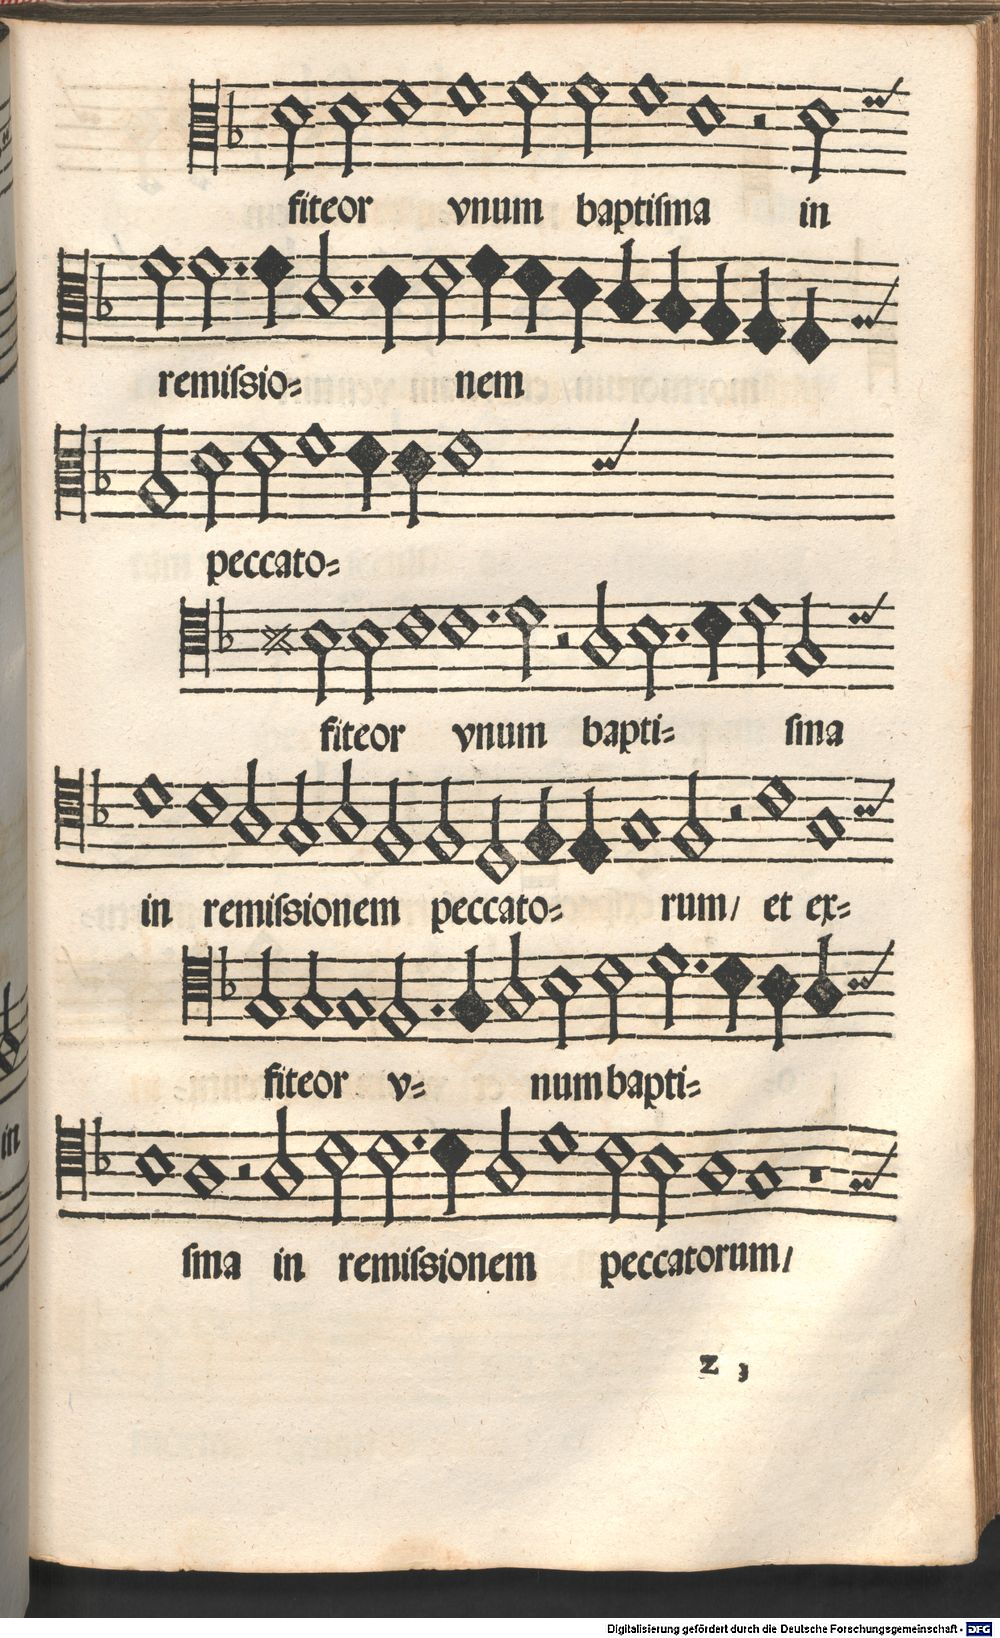 fiteor vnum baptiſma in
remiſsio= nem
peccato=
fiteor vnum bapti= ſma
in remiſsionem peccato= rum/ et ex=
fiteor v= numbapti=
ſma in remiſsionem peccatorum/
z 3
Digitalisierung gefördert durch die Deutsche Forschungsgemeinschaft - DFG